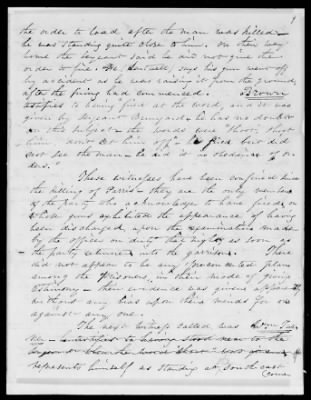 the order to load after the man was killed—
he was standing quite close to him. On their way
home the Sergeant said he did not give the
order to fire. says his gun went off
by accident as he was raising it from the ground,
after the firing had commenced. Brown
testifies to having fired at the word, and it was
given by Sergeant he has no doubt
on this subject — the words were "shoot, shoot
him don't let him off" — he fired but did
not see the man — he did it in obedience to or-
ders."
These witnesses have been confined since
the killing of — they are the only members
of the party who acknowledge to have fired, or
whose guns exhibited the appearance of having
been discharged, upon the examination made
by the officer on duty that night, as soon as
the party returned into the garrison. There
did not appear to be any preconcerted plan
among the Prisoners, in their mode of giving
testimony — their evidence was given apparently
without any bias upon their minds for or
against any one.
The next witness called was
to having stood near to the
when the word "shoot" was given
represents himself as standing at